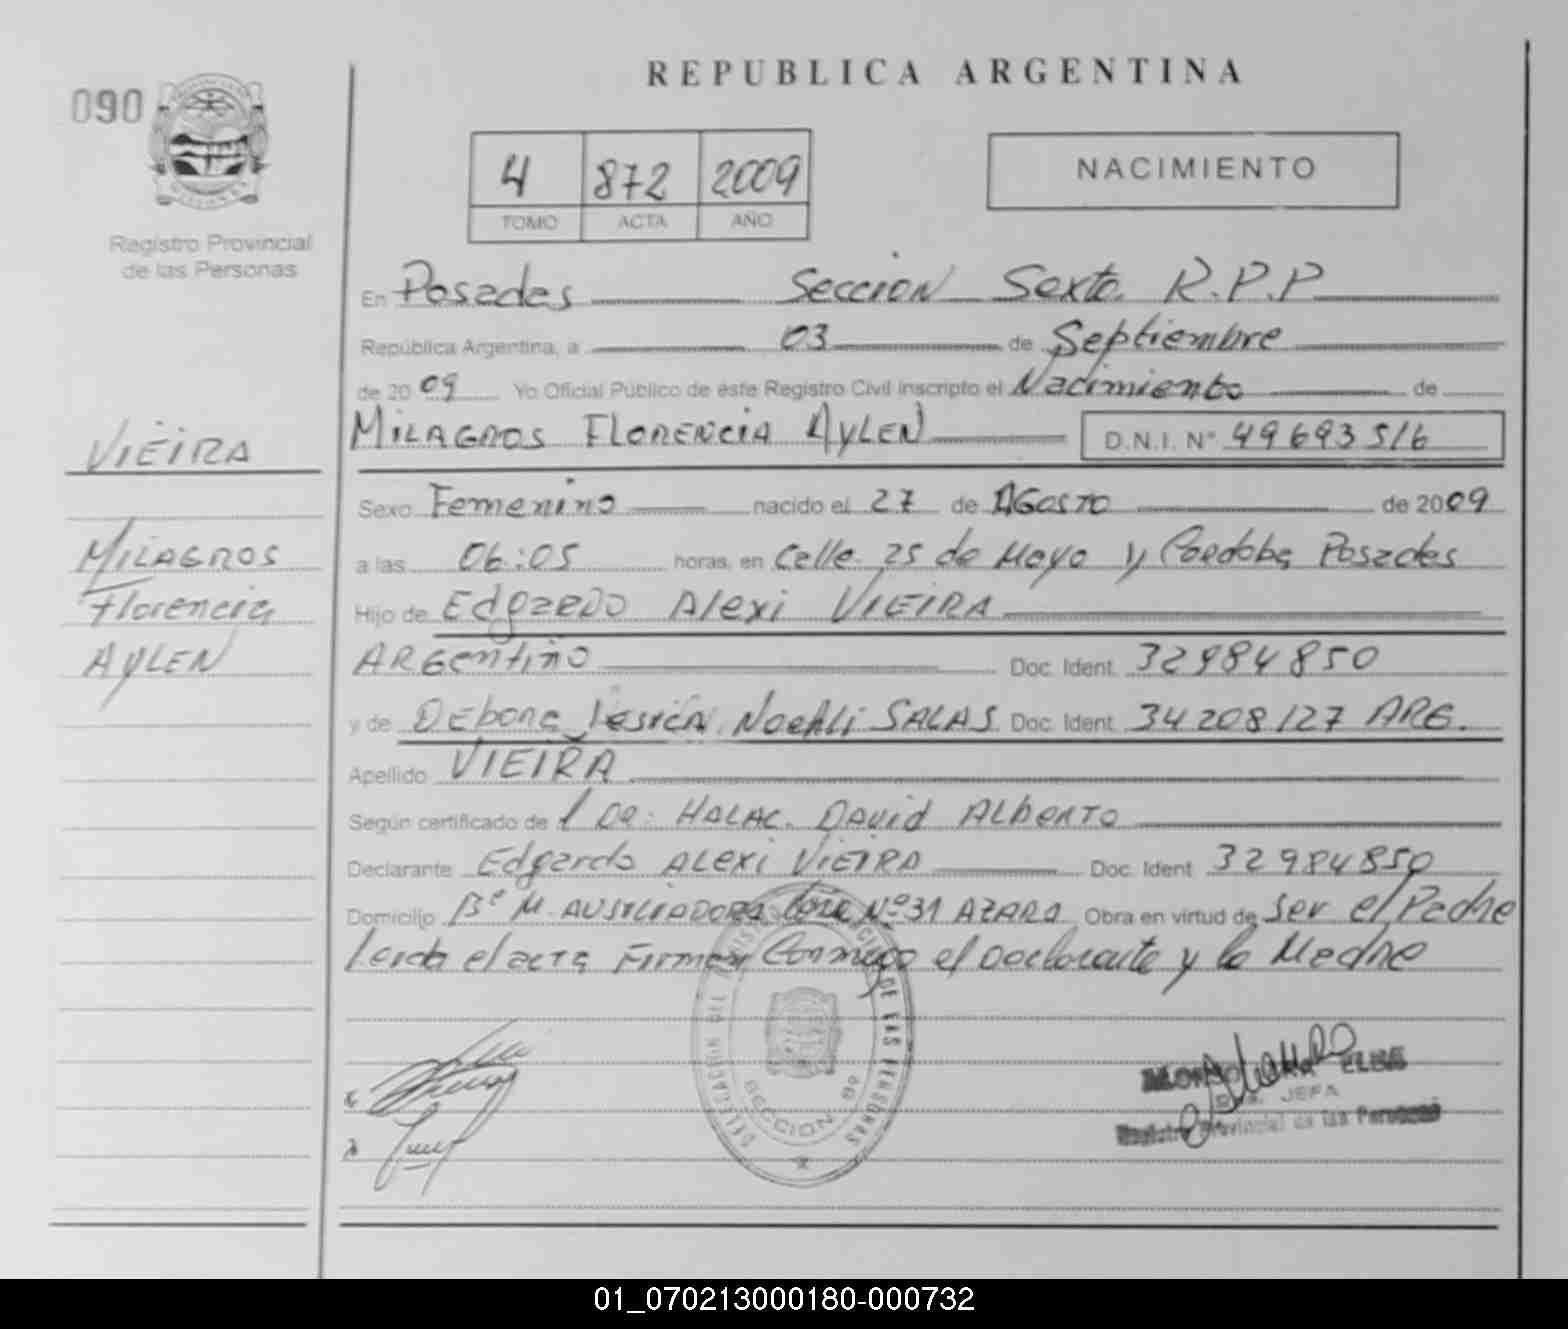 REPUBLICA ARGENTINA
090
4 872 2009
TOMO ACTA AÑO
NACIMIENTO
Registro Provincial
de las Personas
En Posadas Sección Sexta R.P.P
República Argentina, a 03 de Septiembre
de 2009 Yo Oficial Público de éste Registro Civil inscripto el Nacimiento de
VIEIRA
MILAGROS FLORENCIA AYLEN D.N.I. N° 49693516
Sexo Femenino nacido el 27 de AGOSTO de 2009
MILAGROS
a las 06:05 horas, en Calle 25 de Mayo y Cordoba Posadas
Florencia
Hijo de Edgardo Alexi VIEIRA
AYLEN
ARGENTINO Doc. Ident. 32984850
y de Jesica Noehli SALAS Doc. Ident. 34208127 ARG.
Apellido VIEIRA
Según certificado de l DR. HALAC. David ALBERTO
Declarante Edgardo ALEXI VIEIRA Doc. Ident. 32984850
Domicilio B° M. AUXILIADORA N°31 AZARA Obra en virtud de ser el Padre
Leida el acta Firman Conmigo el Declarante y la Madre
DELEGACION DEL REGISTRO PROVINCIAL DE LAS PERSONAS
SECCION 6°
ELBA
JEFA
Registro Provincial de las Personas
01_070213000180-000732